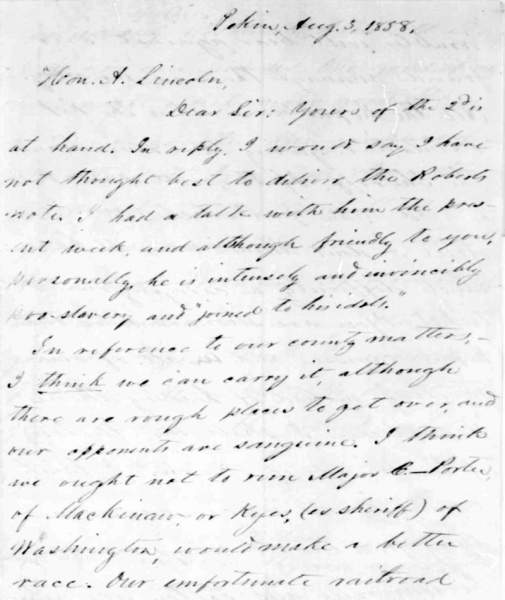 Pekin, Aug. 3, 1858.
Hon. A. Lincoln,
Dear Sir: Yours of the 2d is
at hand. In reply, I would say I have
not thought best to deliver the Roberts
note. I had a talk with him the pres-
ent week, and although friendly to you,
personally, he is intensely and invincibly
pro-slavery and "joined to his idols."
In reference to our county matters,—
I think we can carry it, although
there are rough places to get over, and
our opponents are sanguine. I think
we ought not to run Major C—Porter,
of Mackinaw, or Kyes, (ex sheriff) of
Washington, would make a better
race. Our unfortunate railroad